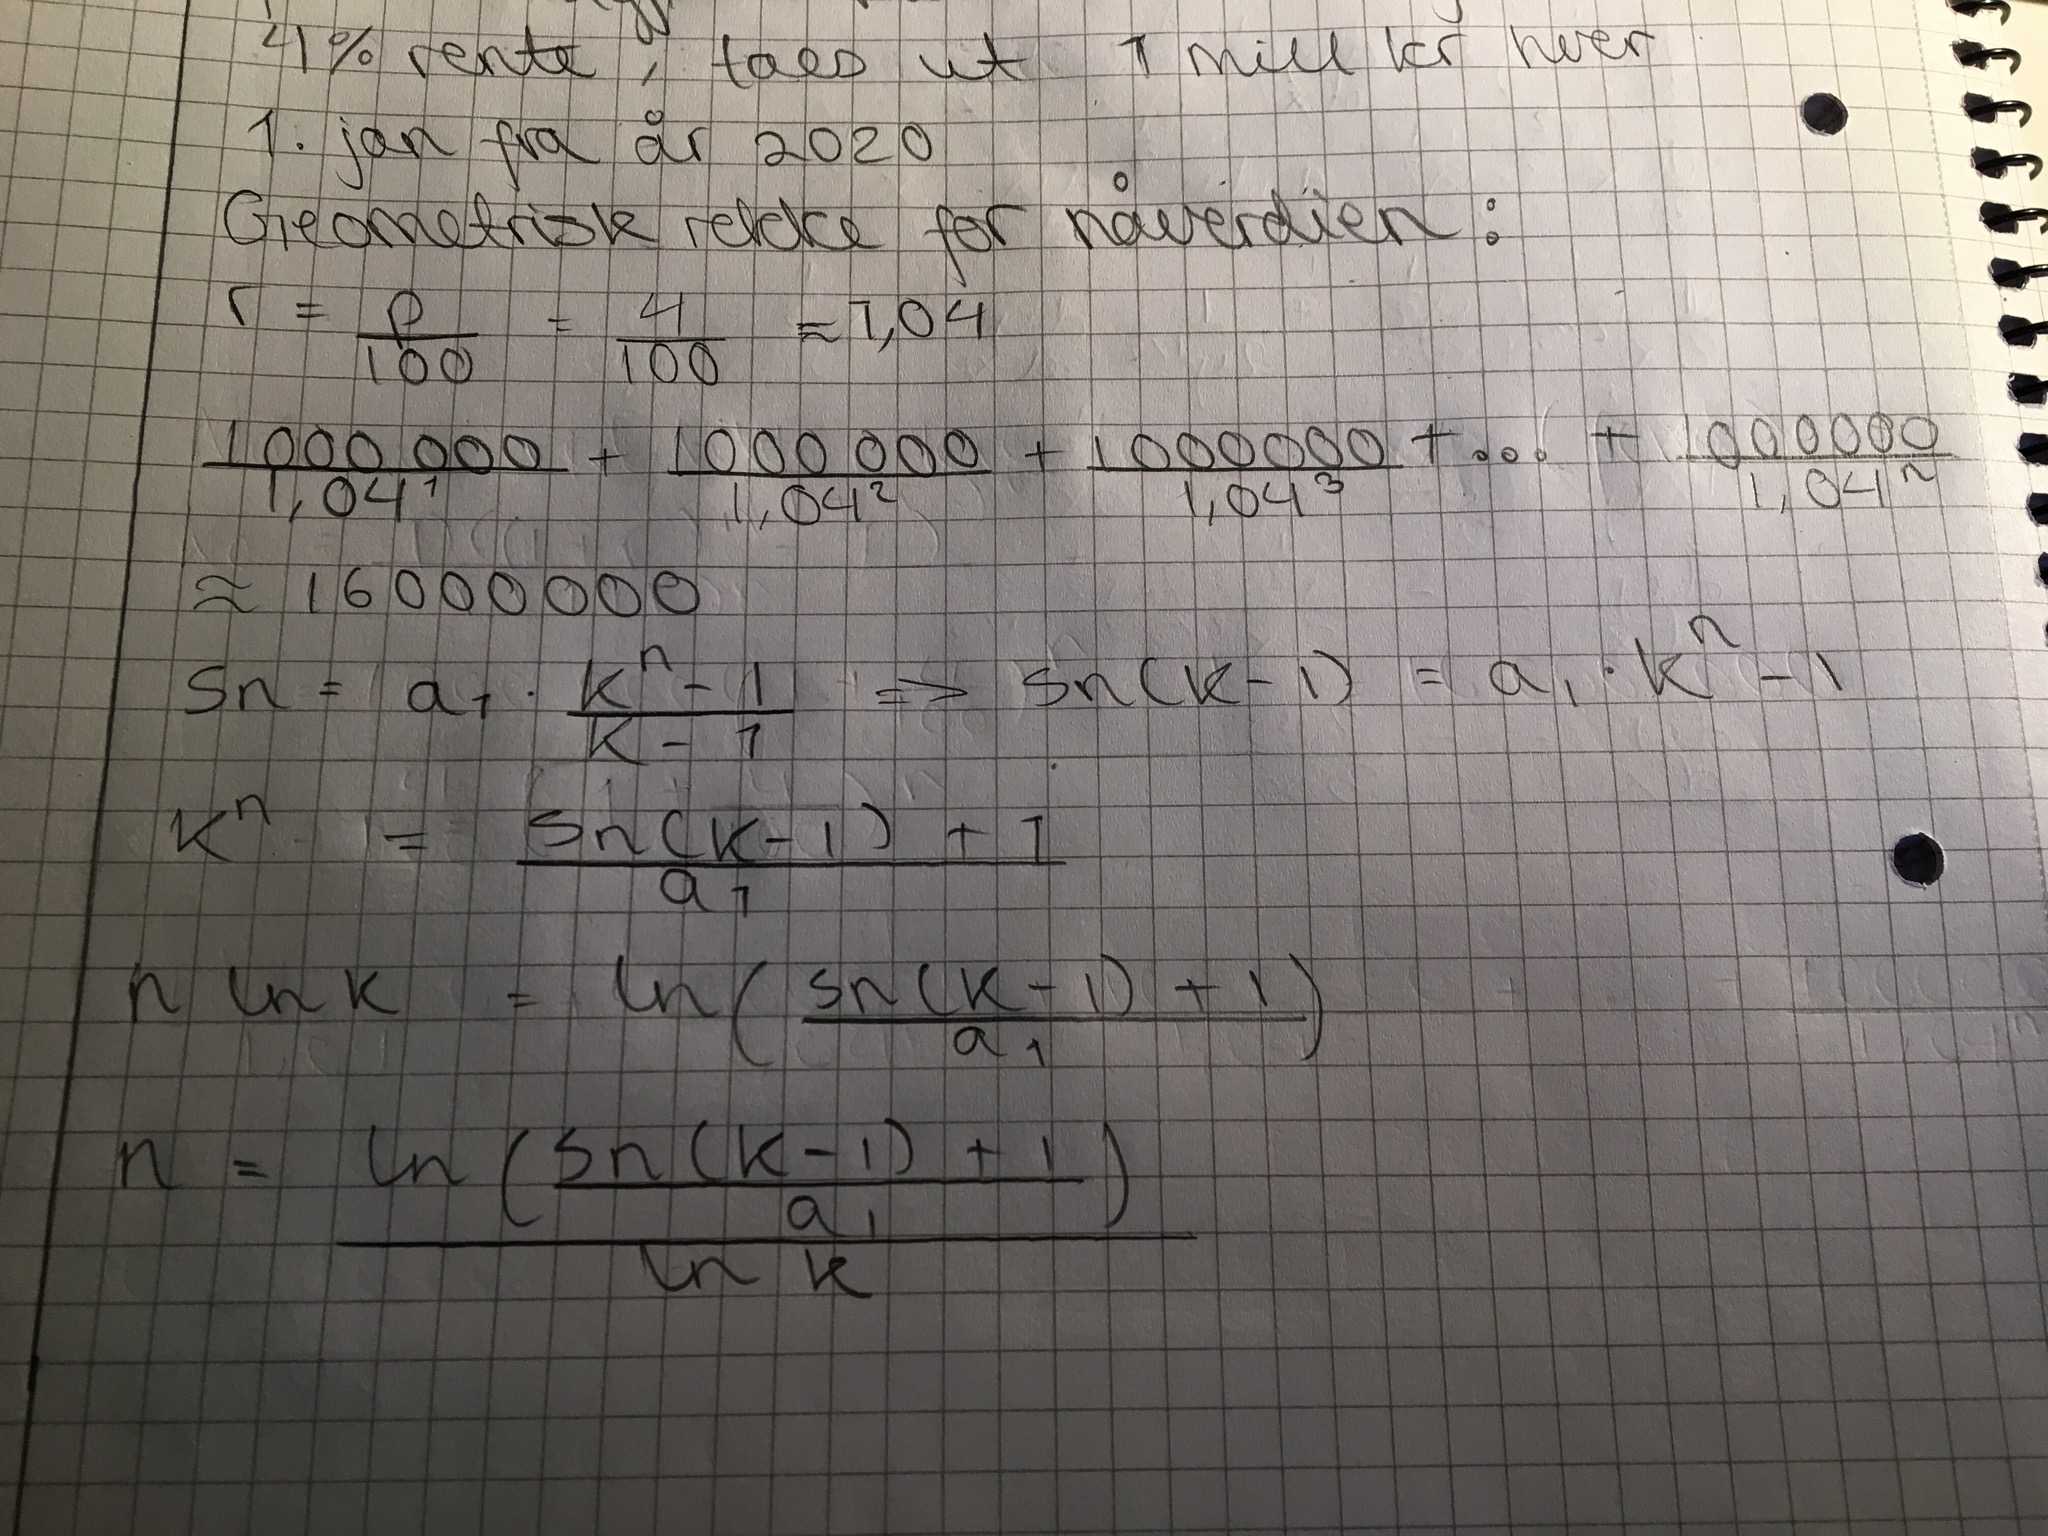 4% rente, taes ut 1 mill kr hver
1. jan fra år 2020
Geometrisk rekke for nåverdien:
r = p/100 = 4/100 ≈ 1,04
1000 000/1,04¹ + 1000 000/1,04² + 1000000/1,04³ + ... + 1000000/1,04ⁿ
≈ 16000000
Sn = a₁ · (kⁿ - 1)/(k - 1) => Sn(k-1) = a₁ · kⁿ - 1
kⁿ = (Sn(k-1) + 1)/a₁
n ln k = ln((Sn(k-1) + 1)/a₁)
n = ln((Sn(k-1) + 1)/a₁)/ln k